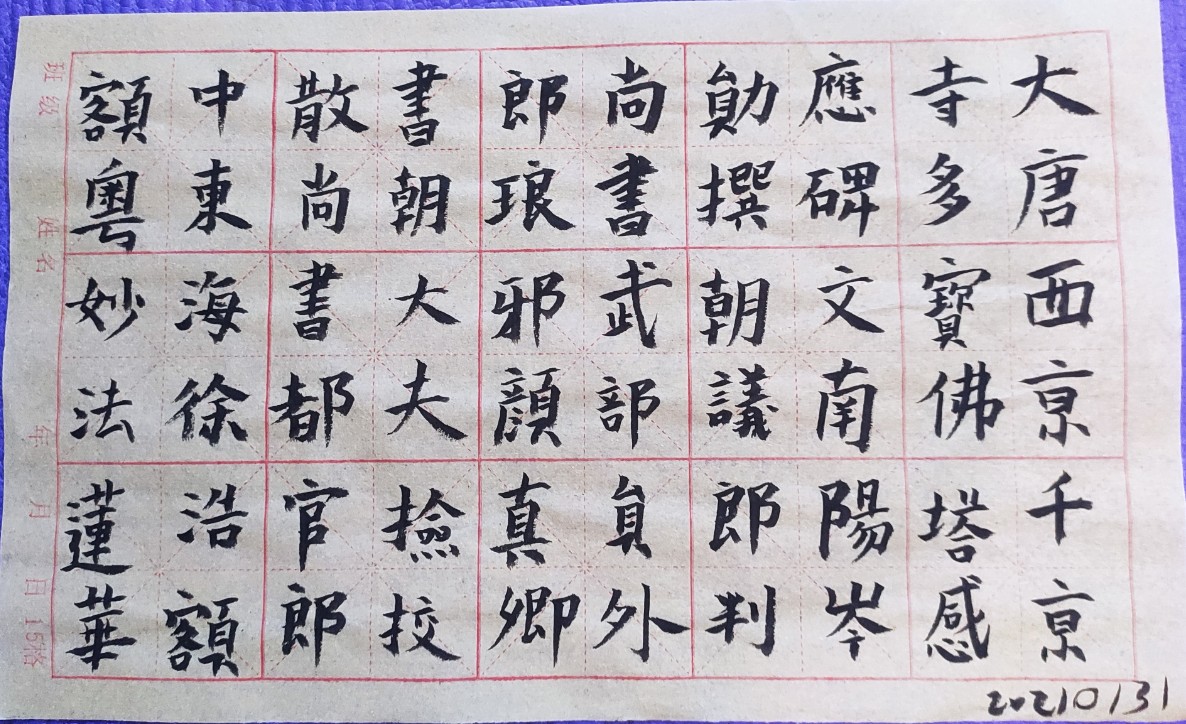 大唐西京千京
寺多寶佛塔感
應碑文南陽岑
勛撰朝議郎判
尚書武部員外
郎琅邪顏真卿
書朝大夫撿挍
散尚書都官郎
中東海徐浩額
額粵妙法蓮華
班级 姓名 年 月 日 15格
20210131